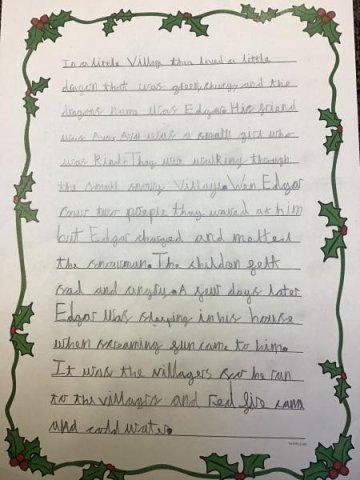 In a little Village thar lived a little
dragon that was green, chubby and the
dragons name was Edgar. His friend
was Ava. Ava was a small girl who
was kind. They wer walking though
the small snowy Village. Wen Edgar
saw two people they waved at him
but Edgar charged and melted
the snowman. The children felt
sad and angry. A few days later
Edgar was sleeping in his house
when screaming came to him.
It was the villagers so he ran
to the villagers and red fire came
and cold water.